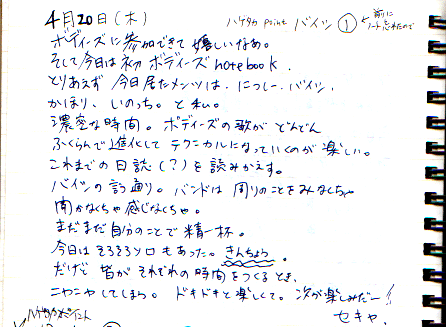 4月20日(木) ハゲタカ point バイソ ① ←前にノート忘れたので
ボディーズに参加できて嬉しいなあ。
そして今日は初ボディーズnotebook.
とりあえず 今日居たメンツは、にっしー、バイソ、
かほり、いのっち。と私。
濃密な時間。ボディーズの歌が どんどん
ふくらんで進化して テクニカルになっていくのが 楽しい。
これまでの日誌(?)を読みかえす。
バイソの言う通り。バンドは 周りのことをみなくちゃ
聞かなくちゃ感じなくちゃ。
まだまだ自分のことで精一杯。
今日はそろそろソロもあった。きんちょう。
だけど 皆が それぞれの時間をつくるとき、
ニヤニヤしてしまう。ドキドキと楽しくて。次が楽しみだー!
セキヤ.
ハゲタカポイント